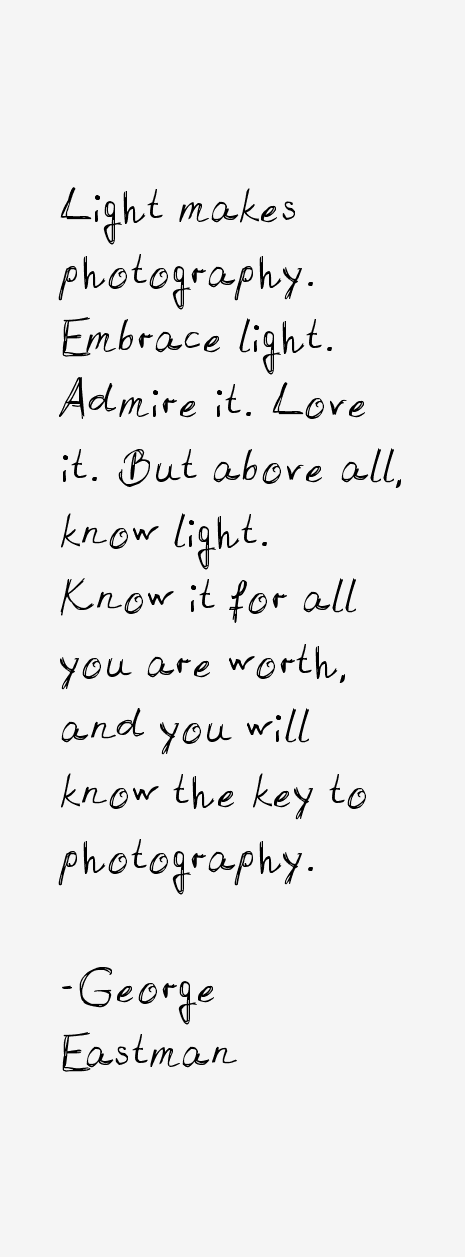 Light makes
photography.
Embrace light.
Admire it. Love
it. But above all,
know light.
Know it for all
you are worth,
and you will
know the key to
photography.

-George
Eastman